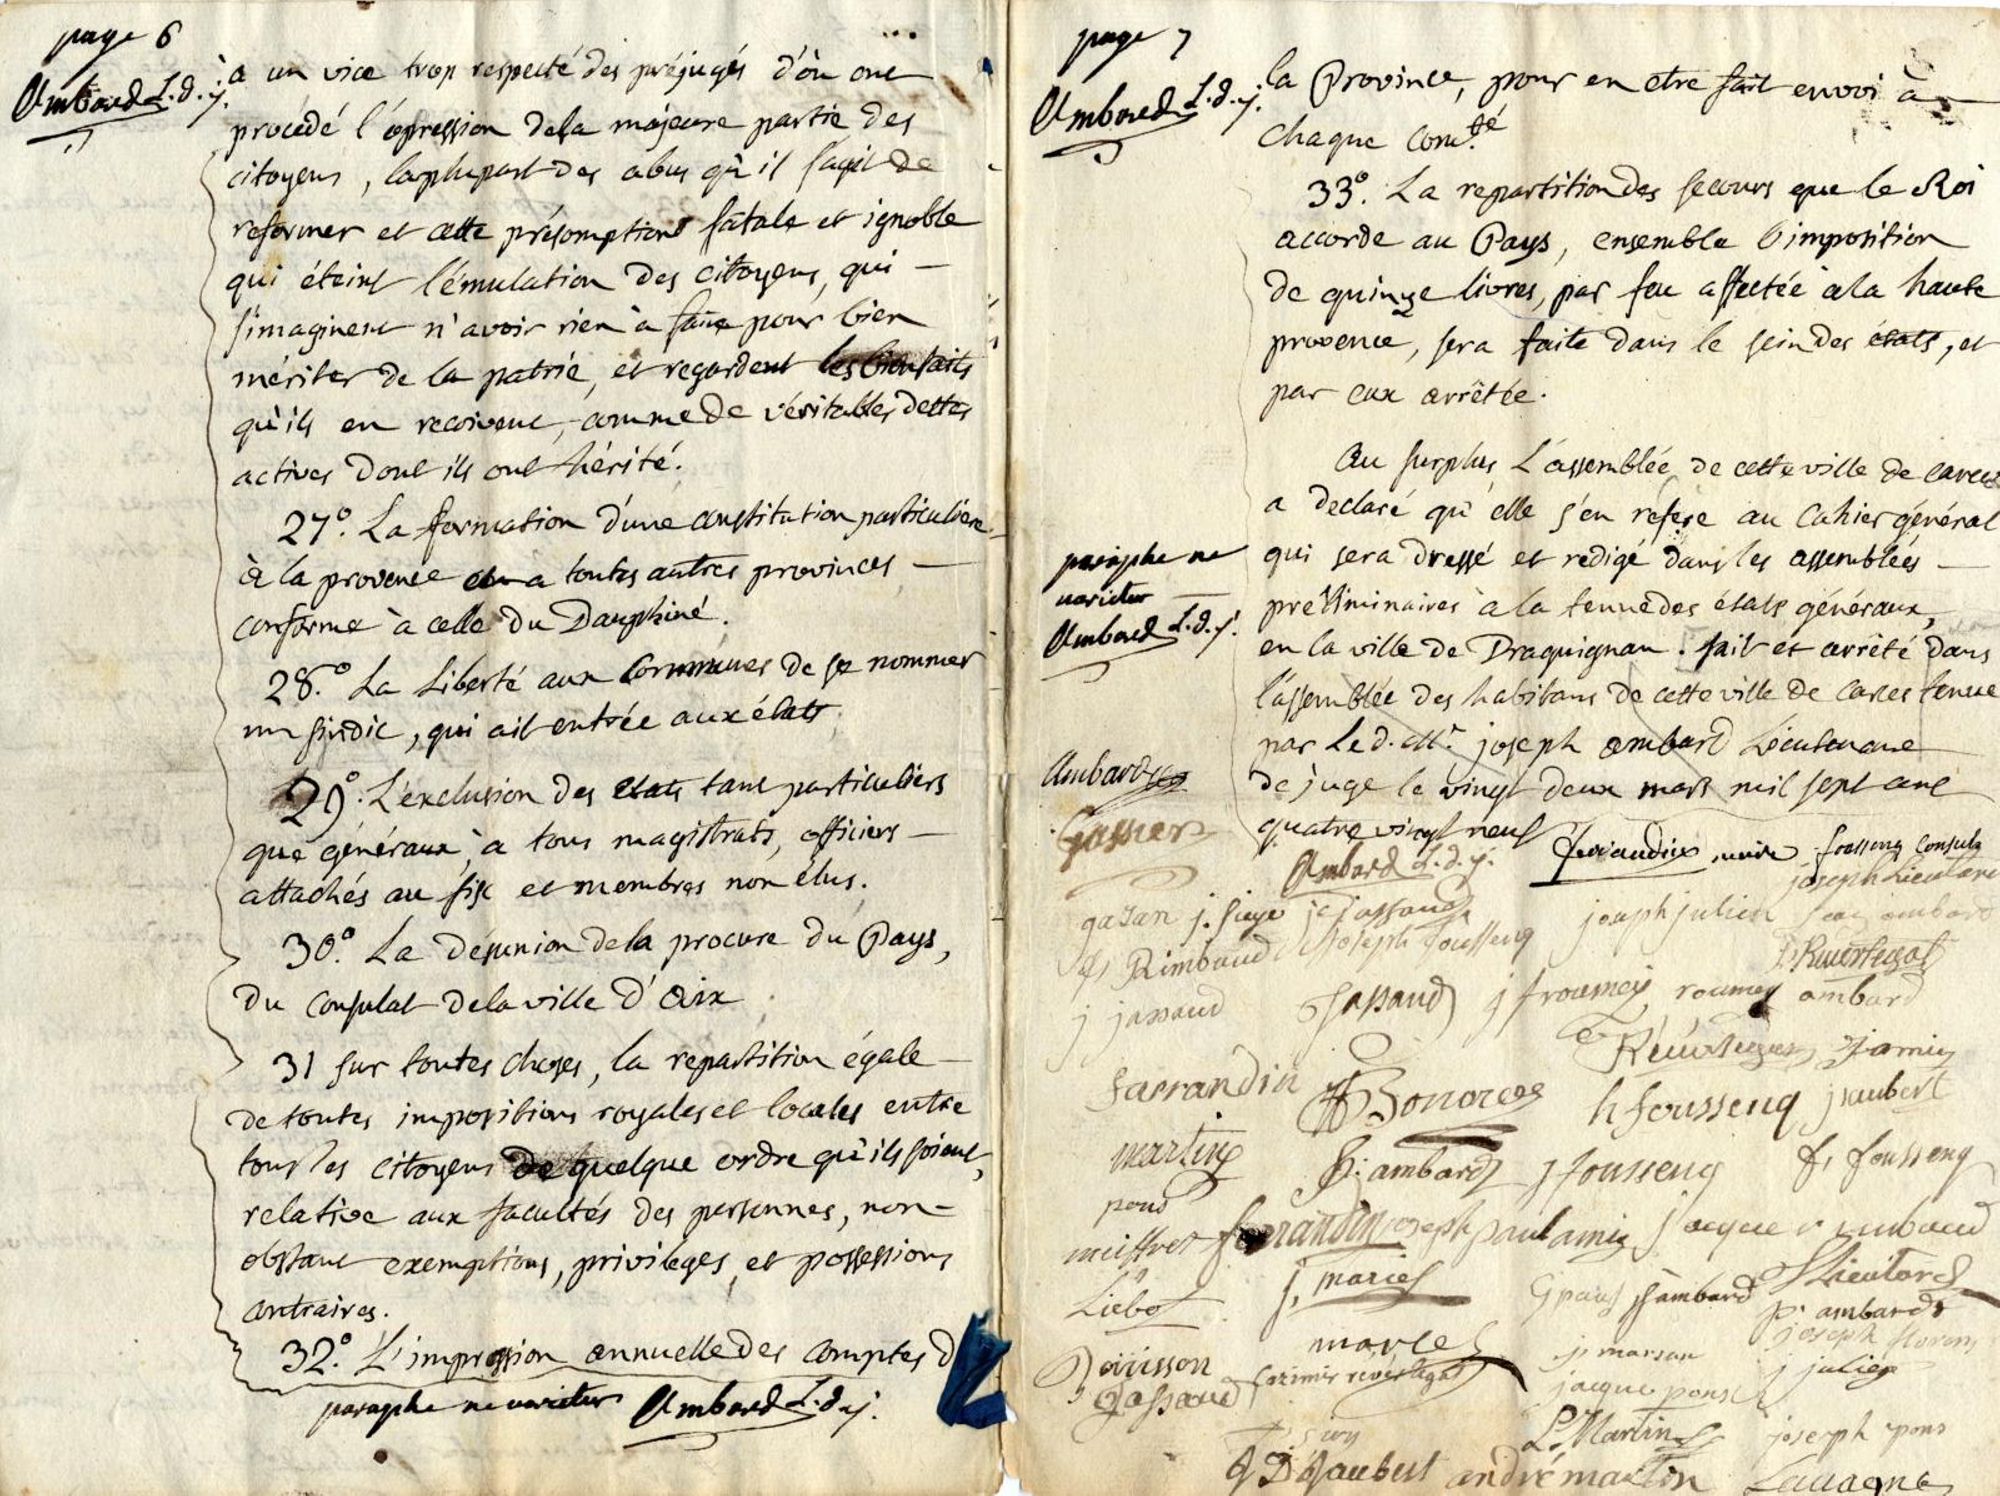 page 6
Ambard L. d. j.
à un vice trop respecté des préjugés d'òu ont
procédé l'opression dela majeure partie des
citoyens, laplupart des abus qu'il s'agit de
reformer et cette présomption fatale et ignoble
qui éteint l'émulation des citoyens, qui —
s'imaginent n'avoir rien à faire pour bien
mériter de la patrie, et regardent les bienfaits
qu'ils en recoivent, comme de véritables dettes
actives dont ils ont hérité.
27° La formation d'une constitution particuliere
à la provence toutes autres provinces —
conforme à celle du Dauphiné.
28.° La Liberté aux Communes de se nommer
un sindic, qui ait entrée aux états
29° L'exclusion des etats tant particuliers
que généraux, à tous magistrats, officiers —
attachés au fisc et membres non élus.
30.° La Désunion dela procure du Pays,
du Consulat delaville d'aix
31 sur toutes choses, la repartition égale —
de toutes impositions royales et locales entre
tous les citoyens de quelque ordre qu'ils soient,
relative aux facultés des personnes, non-
obstant exemptions, privileges, et possessions
contraires.
32.° L'impression annuelle des comptes d
paraphe ne varietur Ambard L. d. j.
page 7
Ambard L. d. j.
la Province, pour en etre fait envoi à —
chaque Com.té
33°. La repartition des secours que le Roi
accorde au Pays, ensemble l'imposition
de quinze livres, par feu affectée à la haute
provence, sera faite dans le sein des états, et
par eux arrêtée.
Au surplus, L'assemblée de cette ville de carces
a declaré qu'elle s'en réfere au Cahier général
qui sera dressé et redigé dans les assemblées —
préliminaires à la tenue des états généraux,
en la ville de Draguignan. fait et arrêté dans
l'assemblée des habitans de cette ville de carces tenue
par Le d. Mr. joseph ambard Lieutenant
de juge le vingt deux mars mil sept cent
quatre vingt neuf
paraphe ne
varietur
Ambard L. d. j.
Ambard
Gassier
Ambard L. d. j.
ferrandin maire fousseng Consul
joseph Lieutard
gazan j. jassaud joseph julien jean ambard
Rimbaud joseph fousseng
Revertegat
j jassaud jassaud j froumey roumey ambard
Revertegat j amic
farrandin Bonorée h fousseng j jaubert
martin ambard j fousseng f. fousseng
pons
meiffret ferrandin joseph paul amic jacque rimbaud
Liebot j, maricel Lieutard
ambard p. ambard
joseph florens
Jassaud Cazimir révertegat j. marsan j julien
jacque pons
L. Martin joseph pons
Jaubert andré martin Lauagne